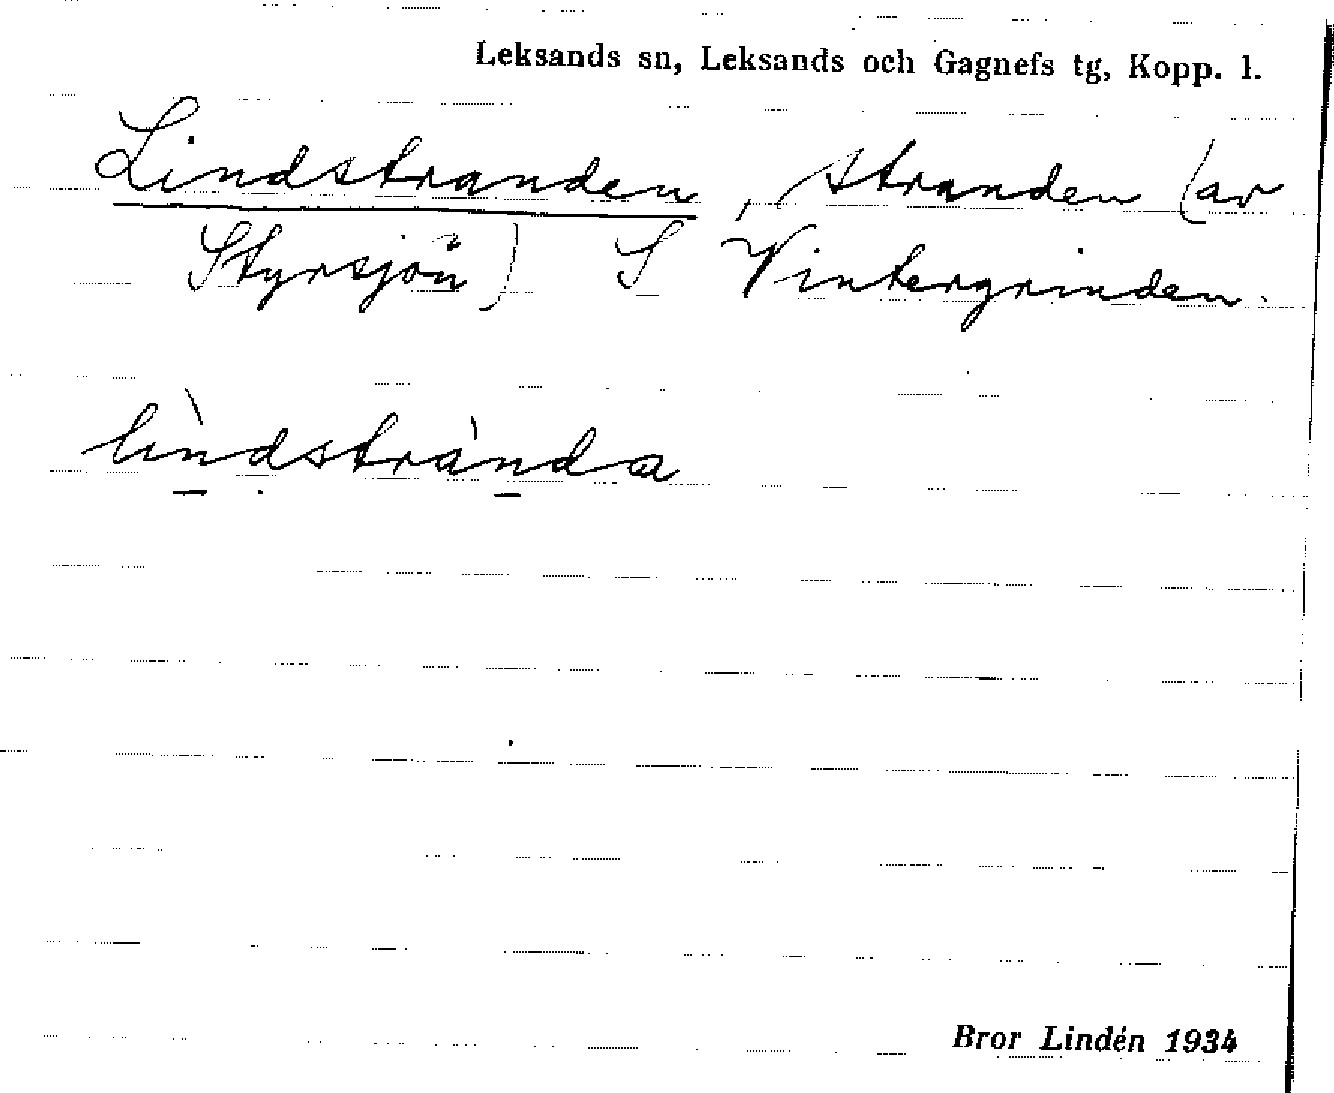 Leksands sn, Leksands och Gagnefs tg, Kopp. l.
Lindstranden, stranden (av
Styrsjön) S Vintergrinden.
lìndstrànda
Bror Lindén 1934